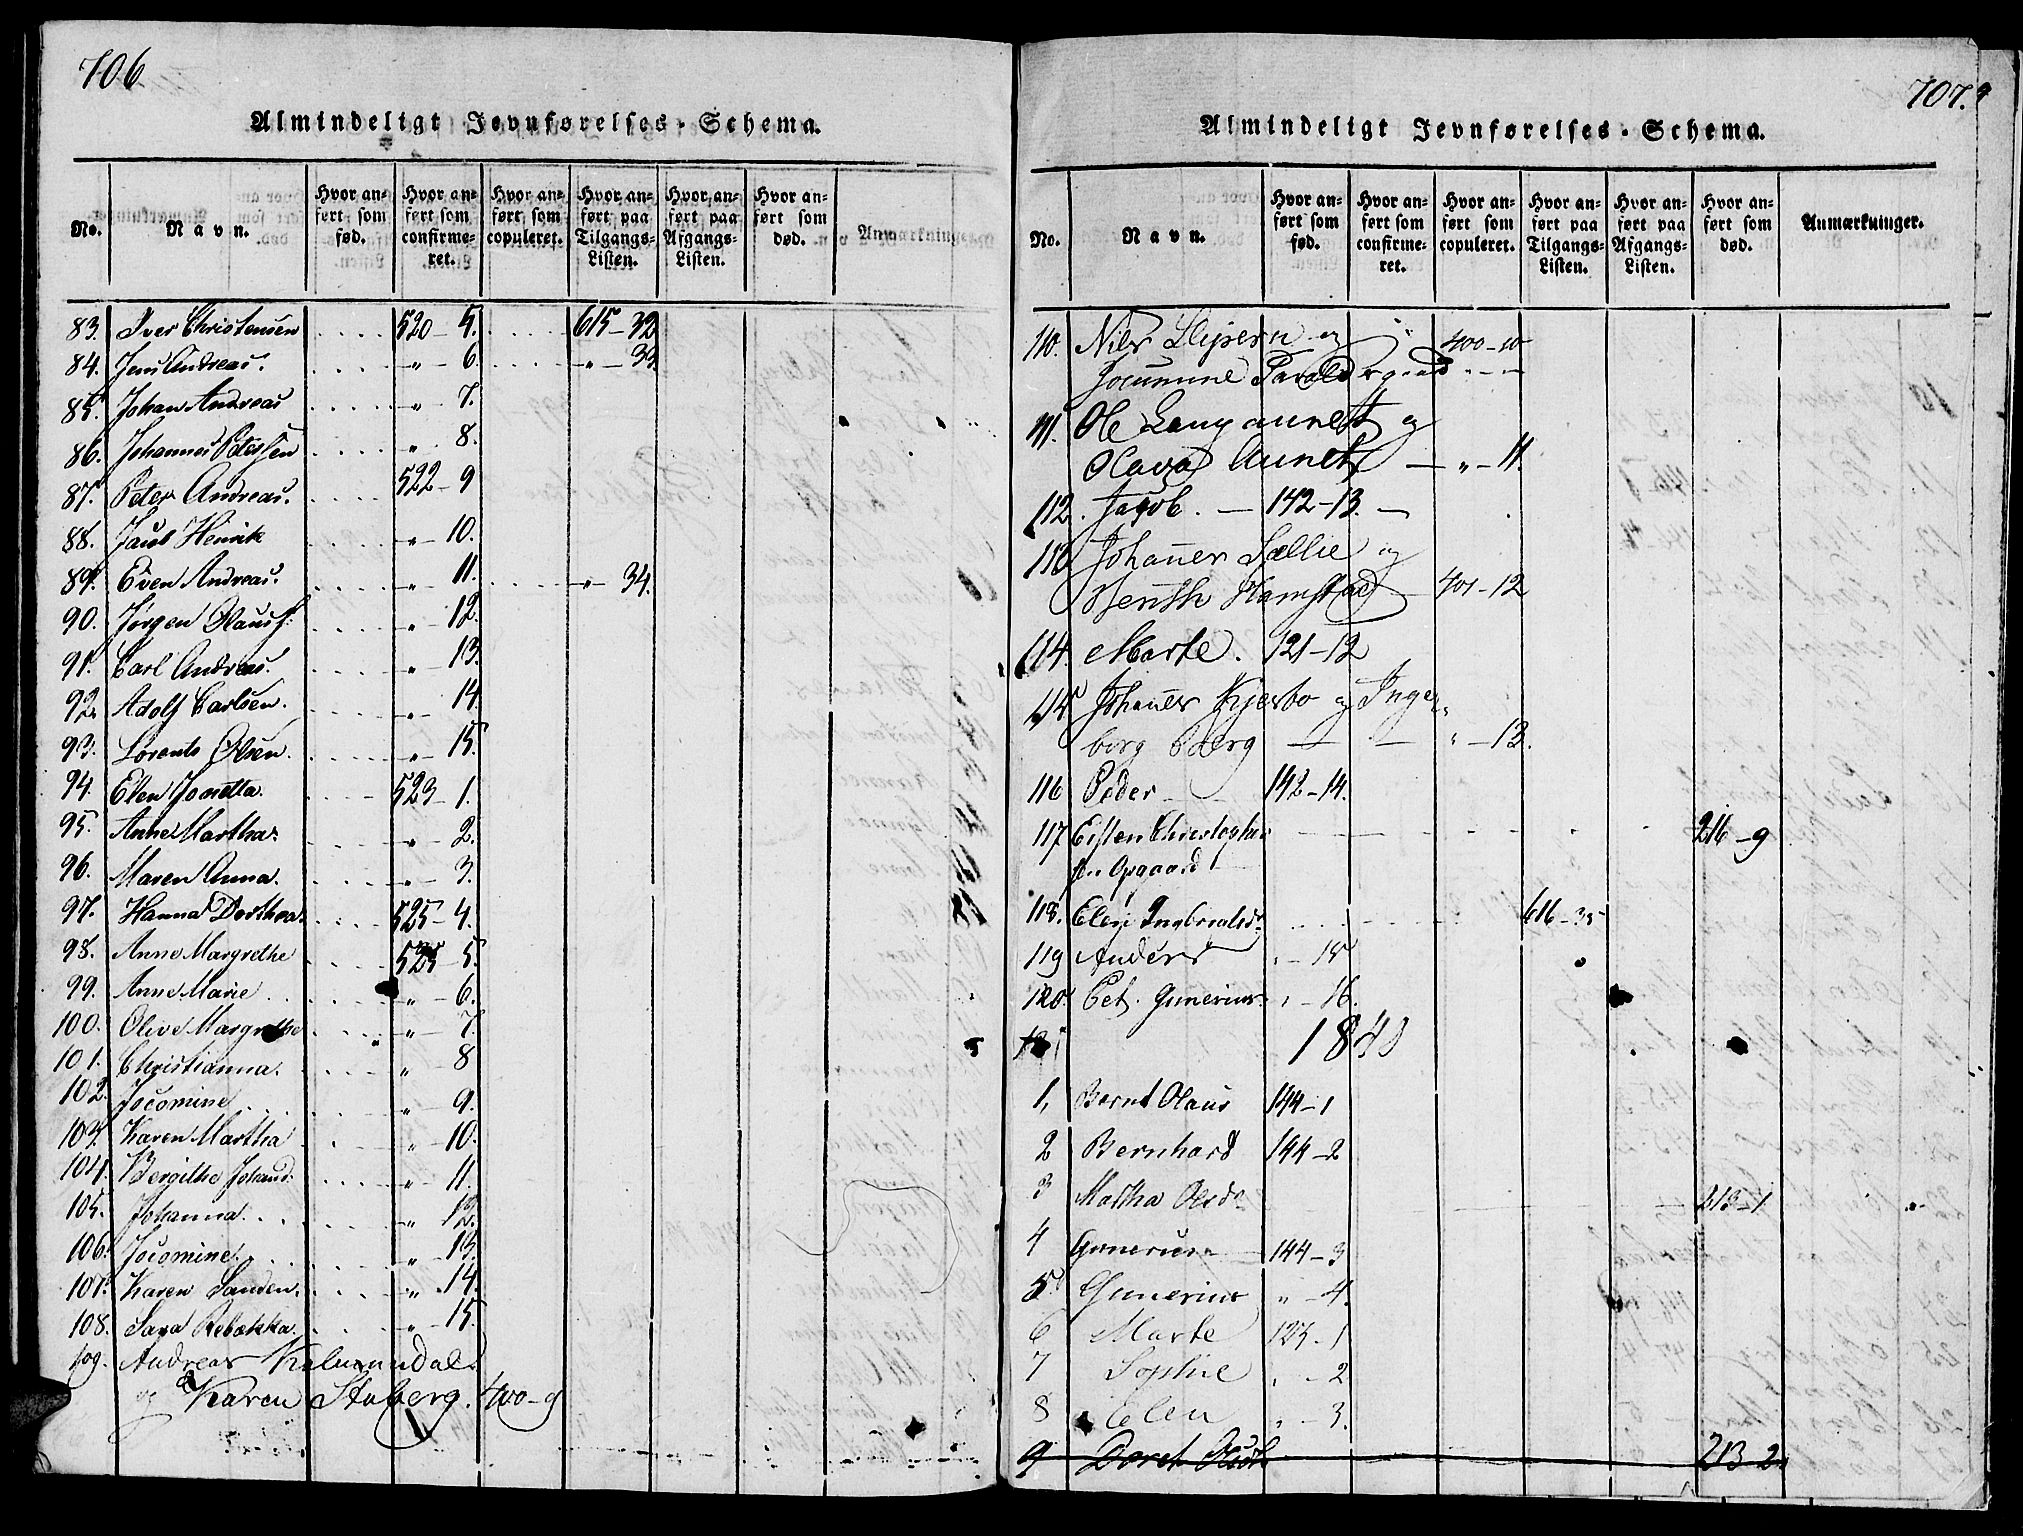 706
Almindeligt Jevnførelses-Schema.
No. Navn. Hvor anført som fød. Hvor anført som confirmeret. Hvor anført som copuleret. Hvor anført paa Tilgangs-Listen. Hvor anført paa Afgangs-Listen. Hvor anført som død. Anmærkninger.
83. Iver Christensen 520-5. 615-32
84. Jens Andreas. " 6. " 33
85. Johan Andreas " 7.
86. Johannes Peterssen " 8.
87. Peter Andreas. 522-9
88. Jacob Henrik " 10.
89. Even Andreas. " 11. " 34.
90. Jørgen Olaus " 12.
91. Carl Andreas. " 13.
92. Adolf Carlsen. " 14.
93. Lorents Olsen. " 15.
94. Elen Jonetta. 523-1.
95. Anne Martha. " 2.
96. Maren Anna. " 3.
97. Hanna Dorthea. 525-4.
98. Anne Margrethe 525-5.
99. Anne Marie " 6.
100. Olive Margrethe " 7.
101. Christianna. " 8
102. Jocomine " 9.
103. Karen Martha " 10.
104. Bergithe Johand: " 11.
105. Johanna. " 12.
106. Jocomine. " 13.
107. Karen Sanden. " 14.
108. Sara Rebekka. " 15.
109. Andreas
og Karen Staberg. 400-9
707.
Almindeligt Jevnførelses-Schema.
No. Navn. Hvor anført som fød. Hvor anført som confirmeret. Hvor anført som copuleret. Hvor anført paa Tilgangs-Listen. Hvor anført paa Afgangs-Listen. Hvor anført som død. Anmærkninger.
110. Niels og 400-10
111. Ole og
Aunet — " — 11.
112. Jacob. — 142-13. —
113 Johannes Sællie og
Berith Hamstad 401-12
114. Marte. 121-12
115 Johannes Kjesbo og Inge
borg Berg — — " — 13.
116 Peder 142-14.
117 Eisten Christopher 216-9
sen Opgaard
118. Elen Ingbrialsd. 616-35
119 Anders " — 15
120. Pet. Gunerius. " — 16.
1840
1, Bernt Olaus 144-1
2 Bernhard 144-2
3 Martha Olsd. 213-1
4 Gunerius 144-3
5. Gunerius " — 4.
6 Marte 123-1
7 Sophie " — 2
8 Elen " — 3.
9 Doret Olsd. 213-2.